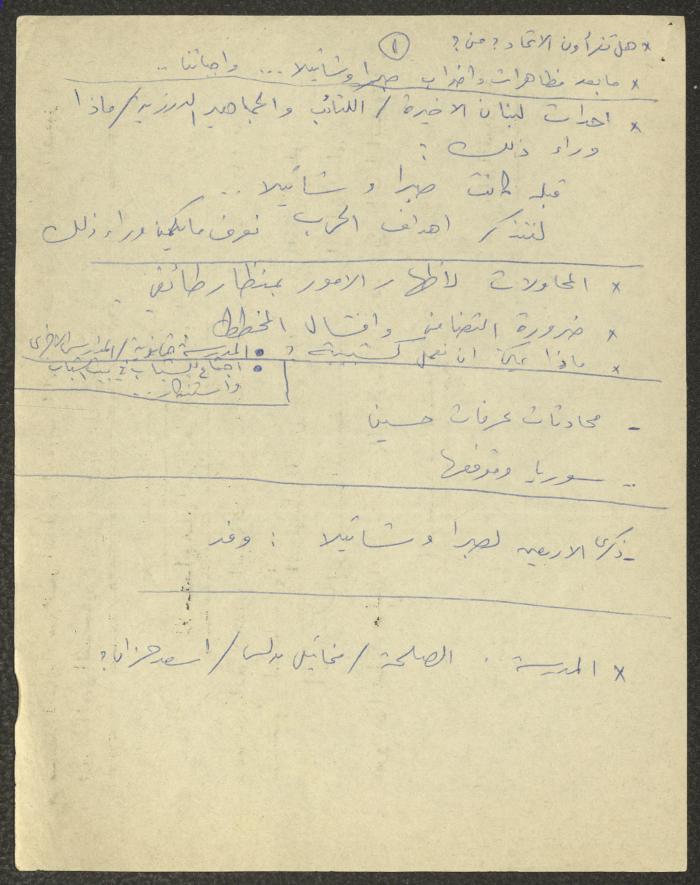 * هل تقرأون الاتحاد؟ من؟
١
* ما بعد مظاهرات واضراب صبرا وشاتيلا ... واجباتنا ..
* احداث لبنان الاخيرة / الكتائب والجماهير الدرزية / ماذا
وراء ذلك :
قبله كانت صبرا وشاتيلا ..
لنتذكر اهداف الحرب نعرف ما يكمن وراء ذلك
* المحاولات لاظهار الامور بمنظار طائفي
* ضرورة التضامن وافشال المخطط
* ماذا يمكن ان نعمل كشبيبة ؟
• المدرسة ثانوية / المدارس الاخرى
• اجتماع للشباب في بيت الشباب
واستنكار ..
- محادثات عرفات حسين
- سوريا وموقفها
- ذكرى الاربعين لصبرا وشاتيلا : وفد
* المدرسة . / /